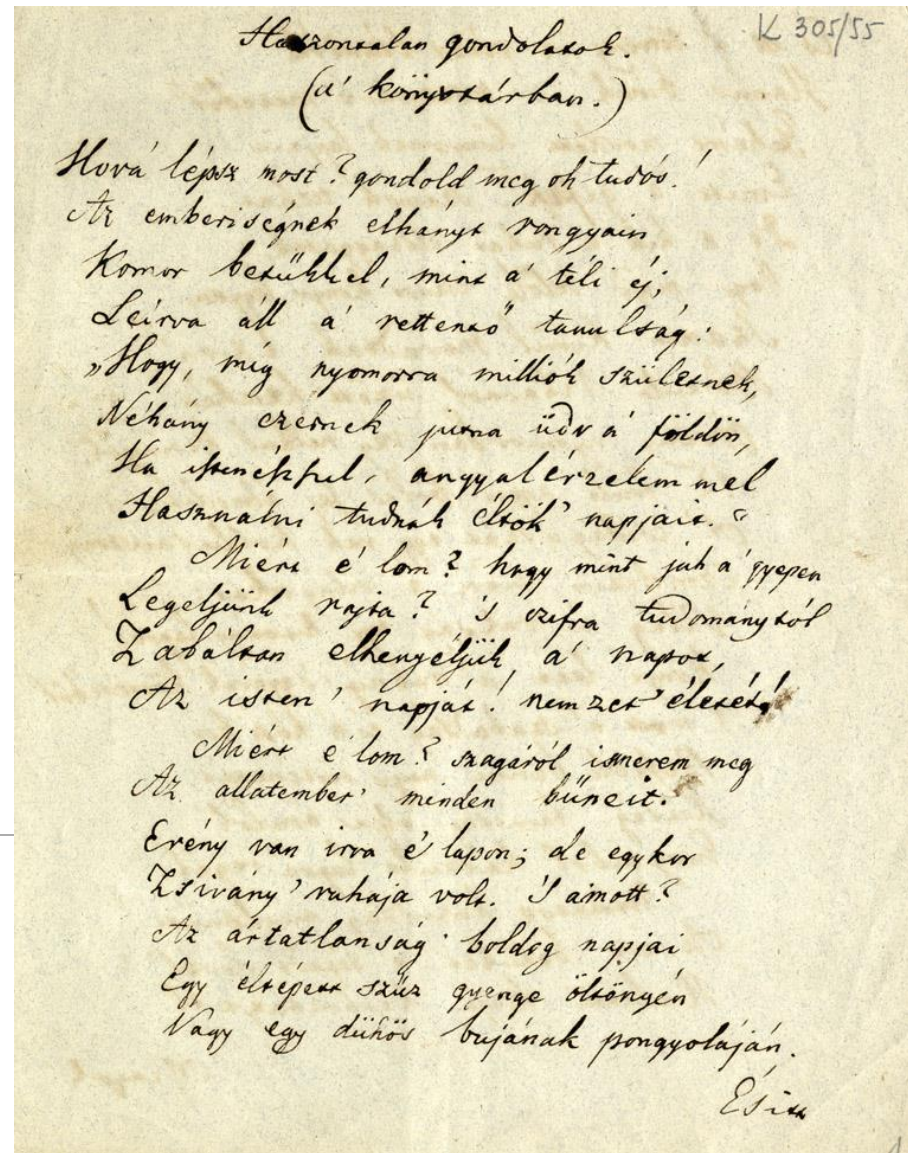 K 305/55
Haszontalan gondolatok.
(a' könyvtárban.)
Hová lépsz most? gondold meg oh tudós!
Az emberiségnek elhányt rongyain
Komor betükkel, mint a' téli éj,
Leírva áll a' rettentő tanulság:
„Hogy, míg nyomorra milliók születnek,
Néhány ezernek jutna üdv a' földön,
Ha istenésszel, angyal érzelemmel
Használni tudnák éltök' napjait."
Miért e' lom? hogy mint juh a' gyepen
Legeljünk rajta? 's czifra tudománytól
Zabáltan elhenyéljük a' napot,
Az isten' napját! nemzet' életét!
Miért e' lom? szagáról ismerem meg
Az allatember' minden bűneit.
Erény van irva e' lapon; de egykor
Zsivány' ruhája volt. 'S amott?
Az ártatlanság' boldog napjai
Egy éltépett szűz gyenge öltönyén
Vagy egy dühös bujának pongyoláján.
És itt